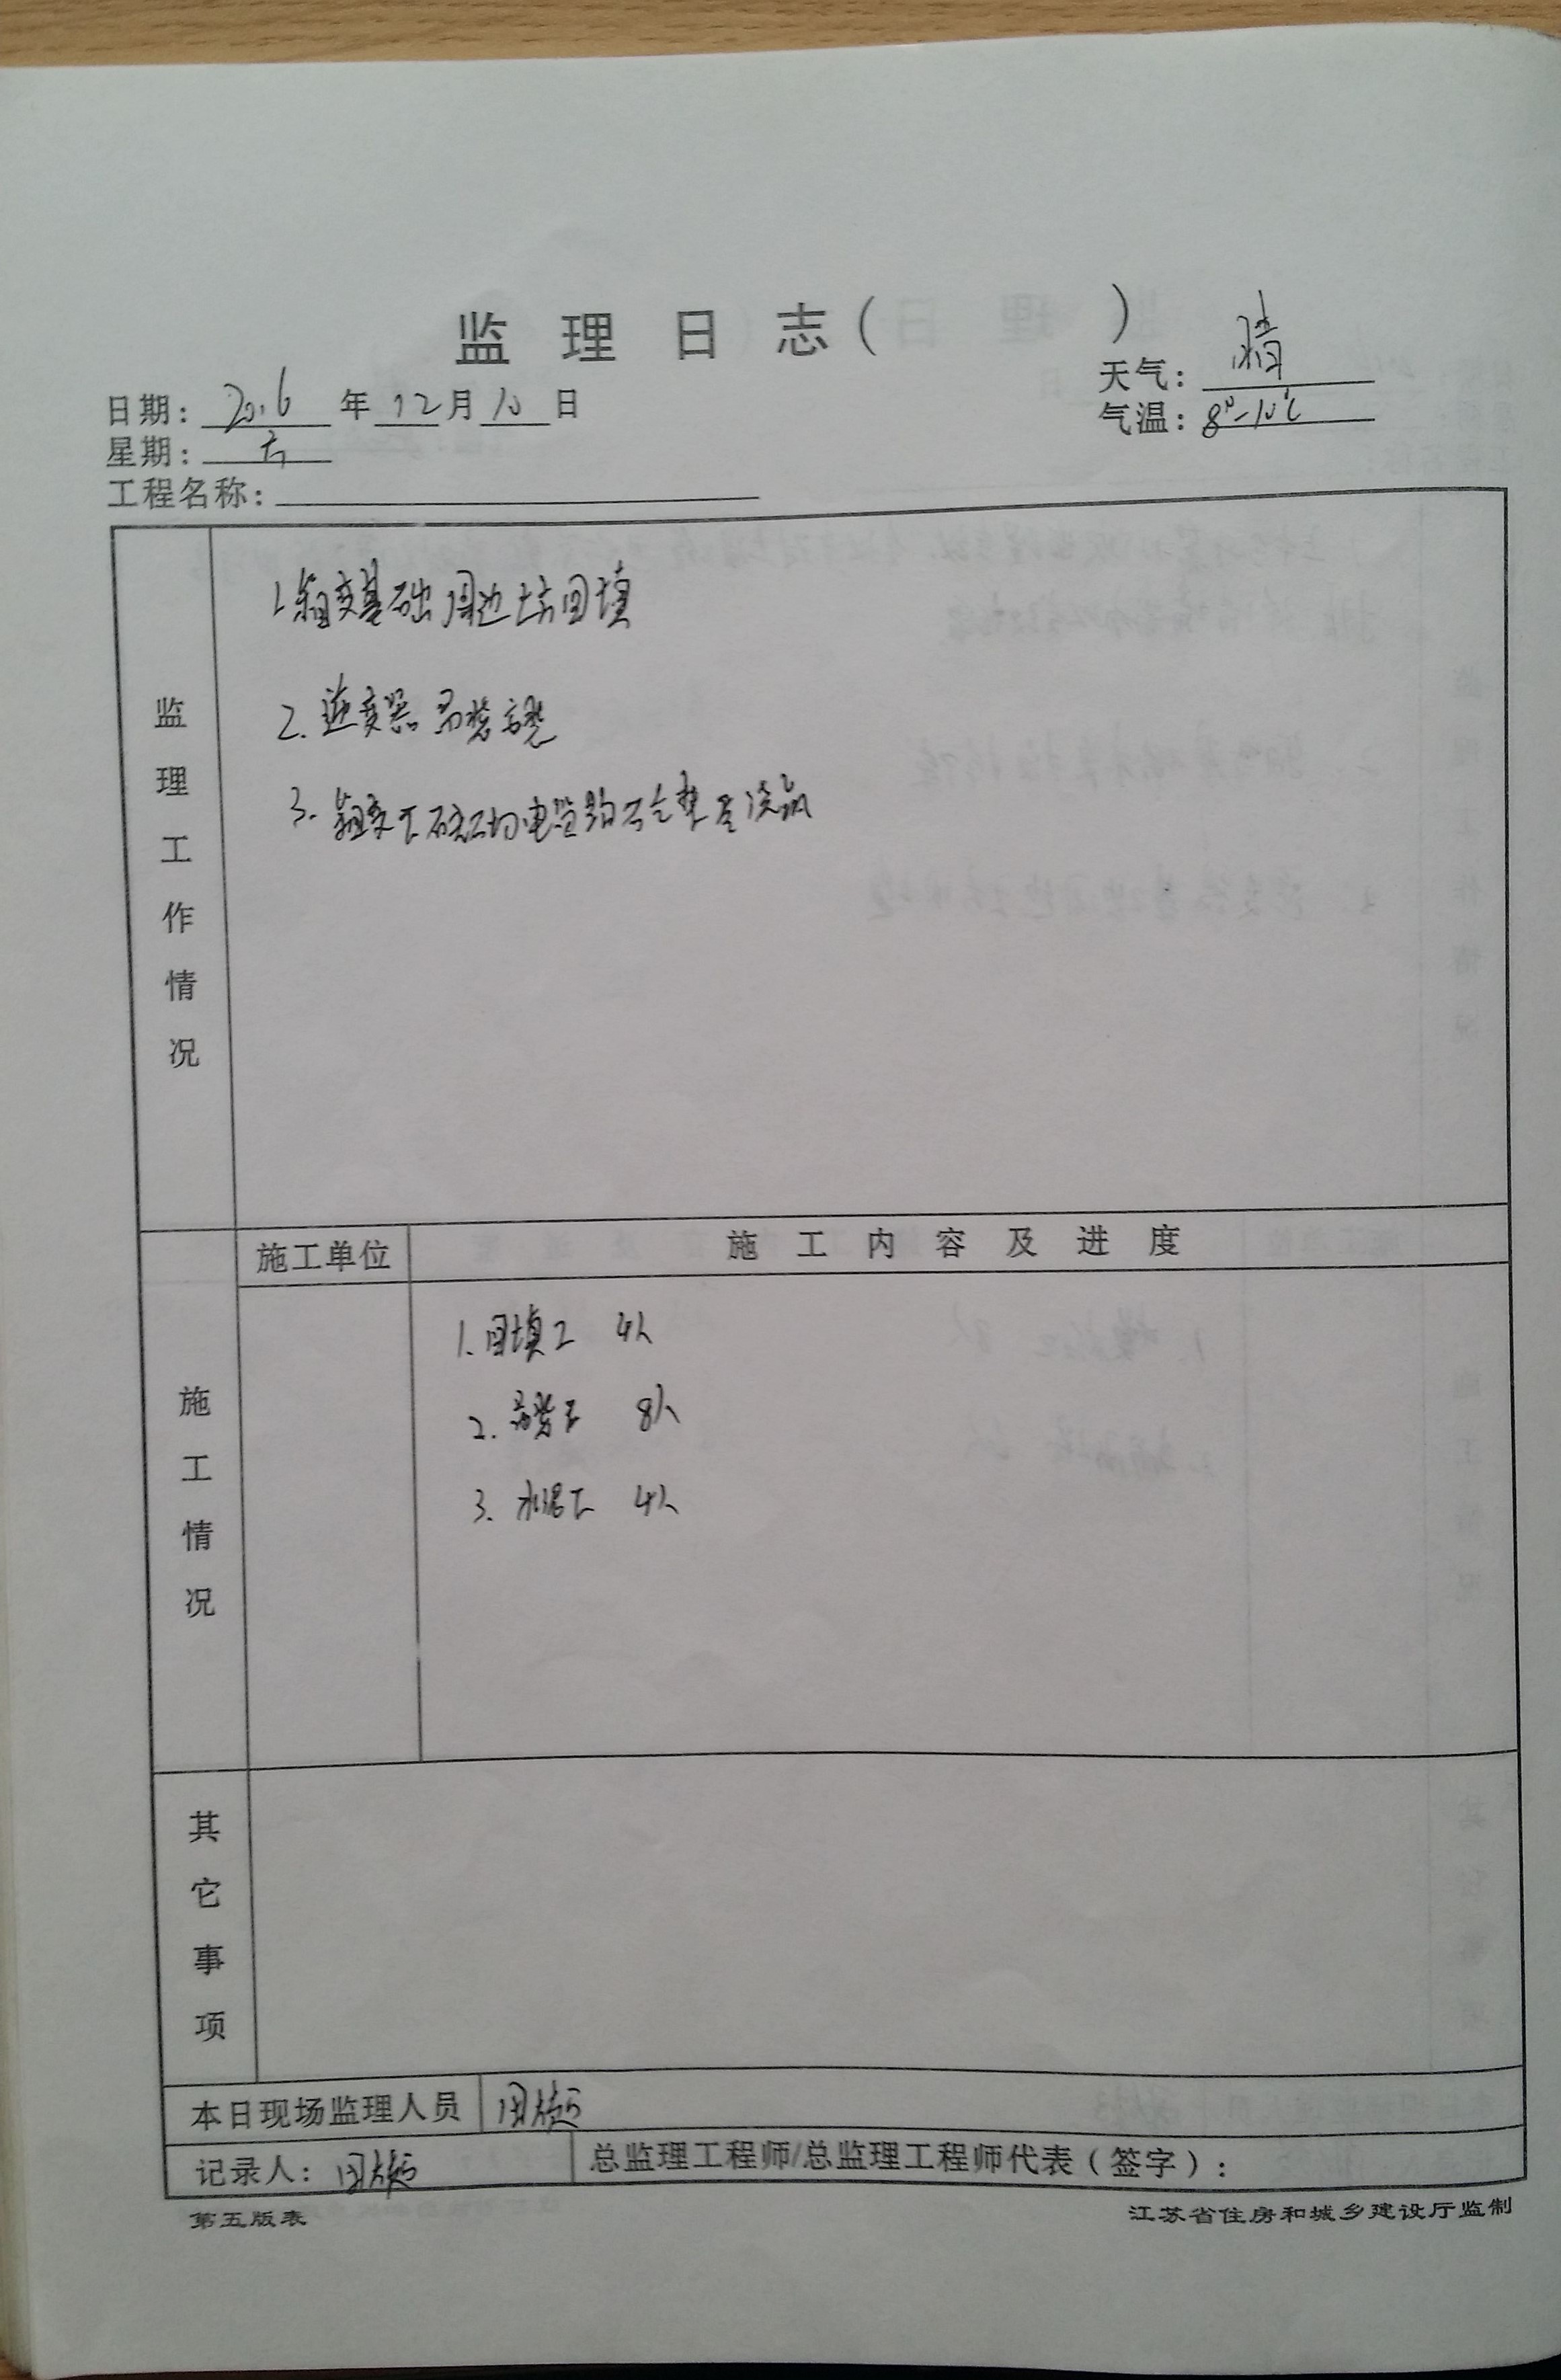 监理日志( )
天气: 晴
日期: 2016 年 12 月 10 日
气温: 8°-10℃
星期: 六
工程名称:
监理工作情况
1.箱变基础周边土方回填
2.逆变器吊装
3.箱变
施工情况
施工单位
施工内容及进度
1.回填工 4人
2.吊装工 8人
3.水泥工 4人
其它事项
本日现场监理人员
记录人:
总监理工程师/总监理工程师代表(签字):
第五版表
江苏省住房和城乡建设厅监制